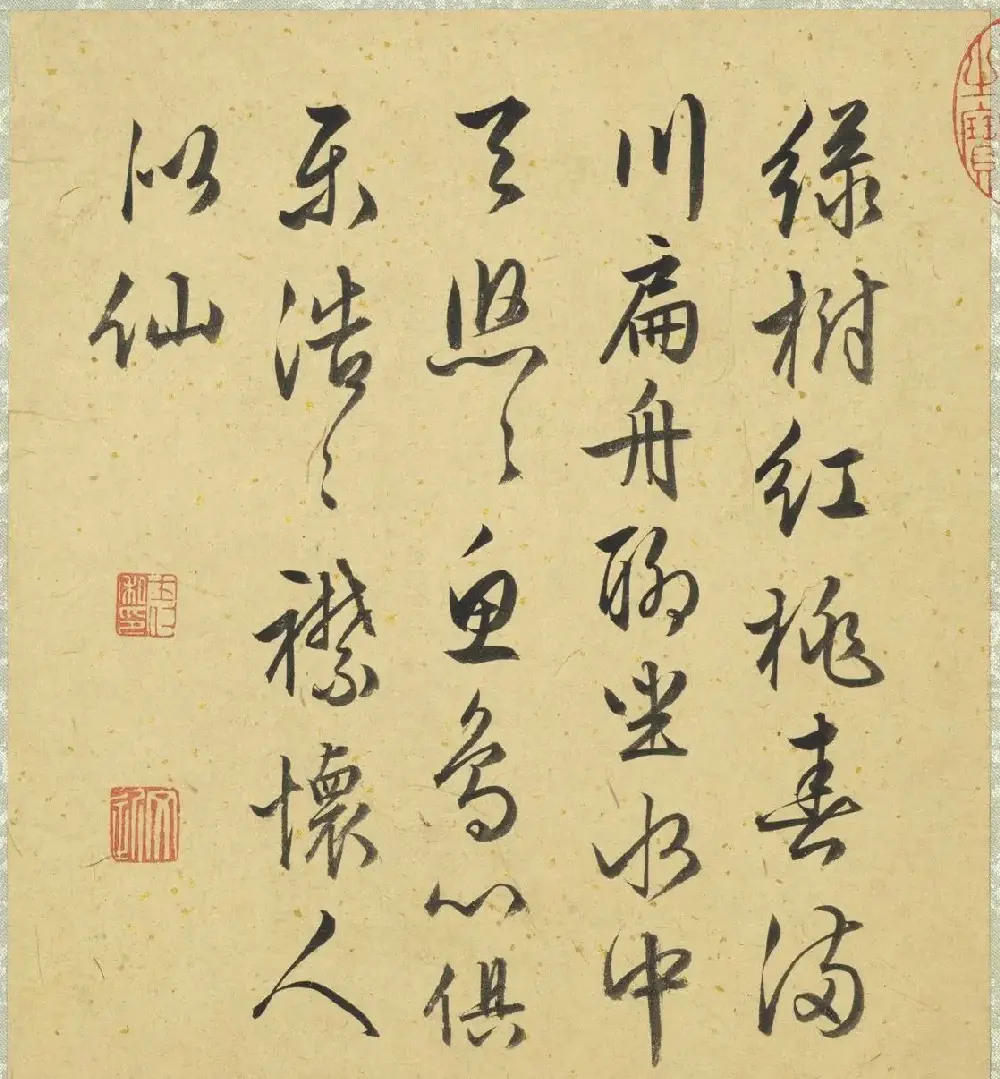 綠樹紅桃春滿
川扁舟聊坐水中
天熙々魚鳥心俱
樂浩々襟懷人
似仙